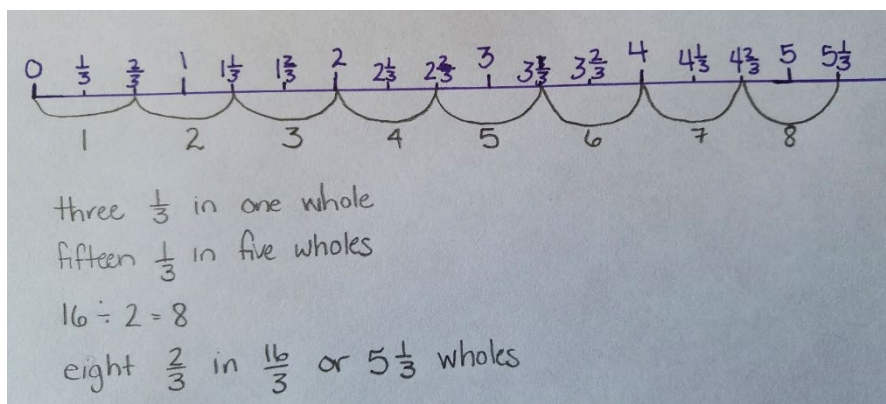 0 1/3 2/3 1 1 1/3 1 2/3 2 2 1/3 2 2/3 3 3 1/3 3 2/3 4 4 1/3 4 2/3 5 5 1/3
1 2 3 4 5 6 7 8
three 1/3 in one whole
fifteen 1/3 in five wholes
16 ÷ 2 = 8
eight 2/3 in 16/3 or 5 1/3 wholes